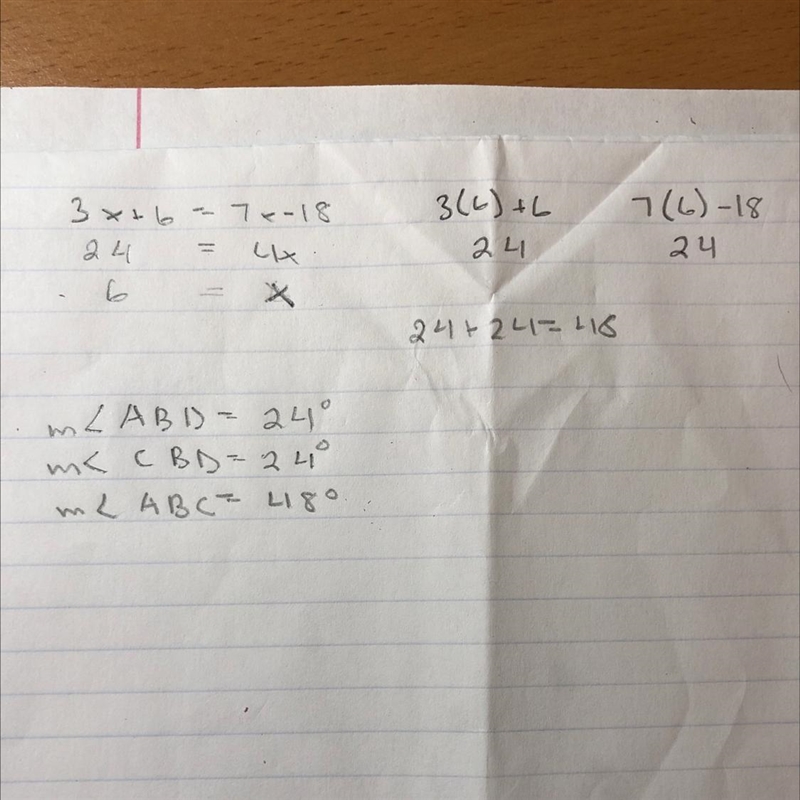 3x+6 = 7x-18
24 = 4x
6 = x
3(6)+6
24
7(6)-18
24
24+24=48
m< ABD = 24°
m< CBD = 24°
m< ABC = 48°